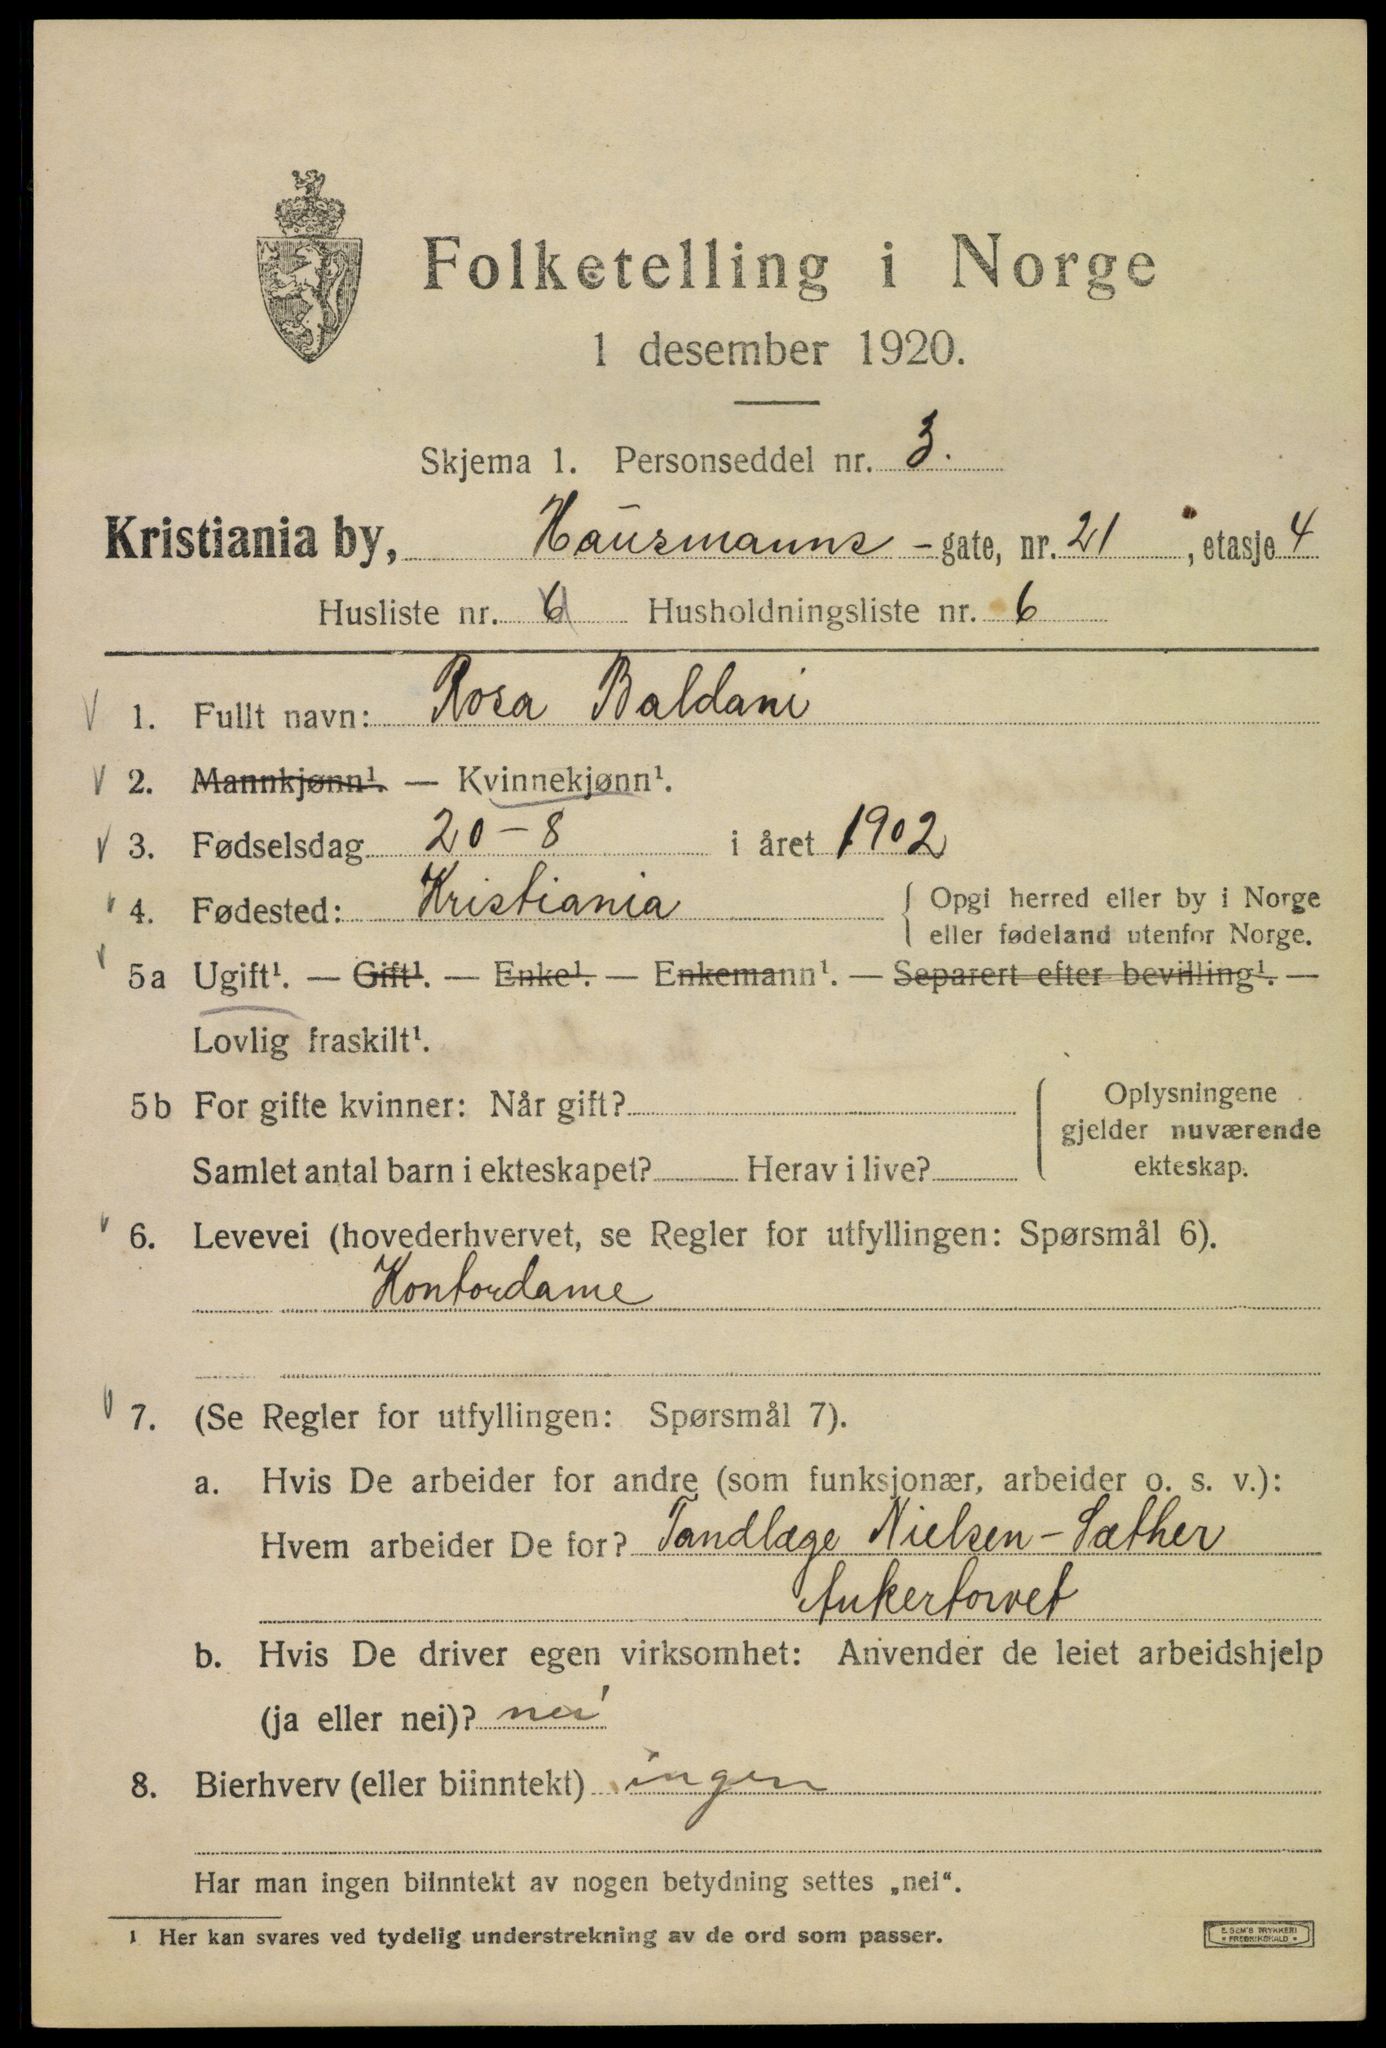 Folketelling i Norge
1 desember 1920.
Skjema 1. Personseddel nr. 3.
Kristiania by, Hausmanns - gate, nr. 21 , etasje 4
Husliste nr. 6 Husholdningsliste nr. 6
1. Fullt navn: Rosa Baldani
2. Mannkjønn¹. — Kvinnekjønn¹.
3. Fødselsdag 20-8 i året 1902
4. Fødested: Kristiania { Opgi herred eller by i Norge
eller fødeland utenfor Norge.
5a Ugift¹. — Gift¹. — Enke¹. — Enkemann¹. — Separert efter bevilling¹. —
Lovlig fraskilt¹.
5b For gifte kvinner: Når gift? { Oplysningene
gjelder nuværende
Samlet antal barn i ekteskapet? Herav i live? ekteskap.
6. Levevei (hovederhvervet, se Regler for utfyllingen: Spørsmål 6).
Kontordame
7. (Se Regler for utfyllingen: Spørsmål 7).
a. Hvis De arbeider for andre (som funksjonær, arbeider o. s. v.):
Hvem arbeider De for? Tandlæge Nielsen-Sæther
Ankertorvet
b. Hvis De driver egen virksomhet: Anvender de leiet arbeidshjelp
(ja eller nei)? nei
8. Bierhverv (eller biinntekt) ingen
Har man ingen biinntekt av nogen betydning settes „nei“.
1 Her kan svares ved tydelig understrekning av de ord som passer.
E. SEM'S TRYKKERI
• FREDRIKSHALD •